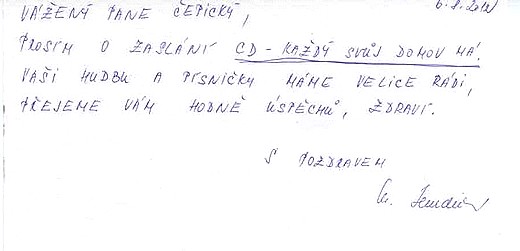 VÁŽENÝ PANE ČEPICKÝ,
PROSÍM O ZASLÁNÍ CD - KAŽDÝ SVŮJ DOMOV MÁ.
VAŠI HUDBU A PÍSNIČKY MÁME VELICE RÁDI,
PŘEJEME VÁM HODNĚ ÚSPĚCHŮ, ZDRAVÍ.
S POZDRAVEM